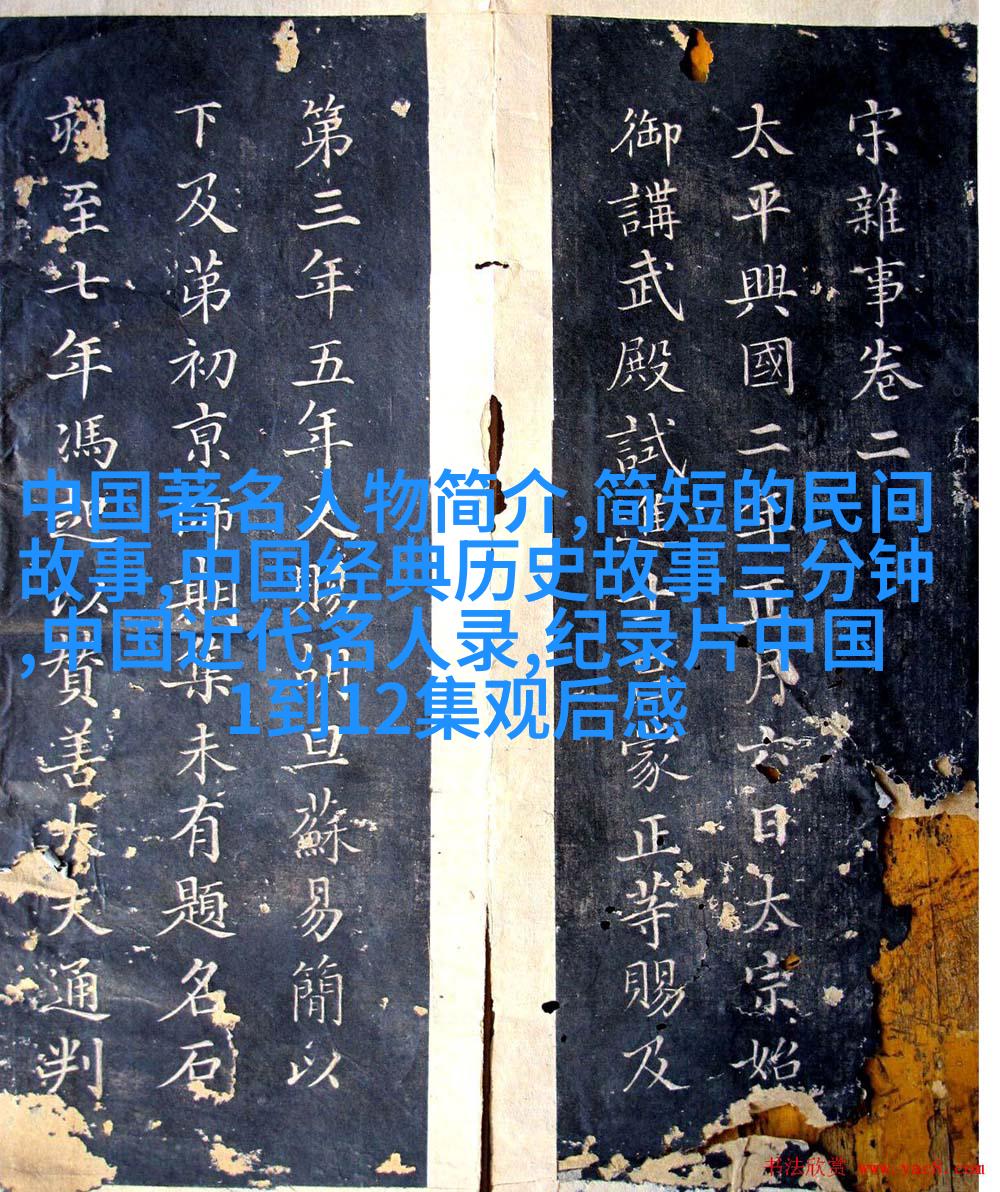 宋雜事卷二
太平興國二年正月六日太宗始
御講武殿試進士蒙正等賜及
第三年五年又賜胡旦蘇易簡以
下及苐初京師期集未有題名石
刻至七年馮起以賛善大夫通判
中国著名人物简介,简短的民间
故事,中国经典历史故事三分钟
,中国近代名人录,纪录片中国
1到12集观后感
书法欣赏 www.yac8.com